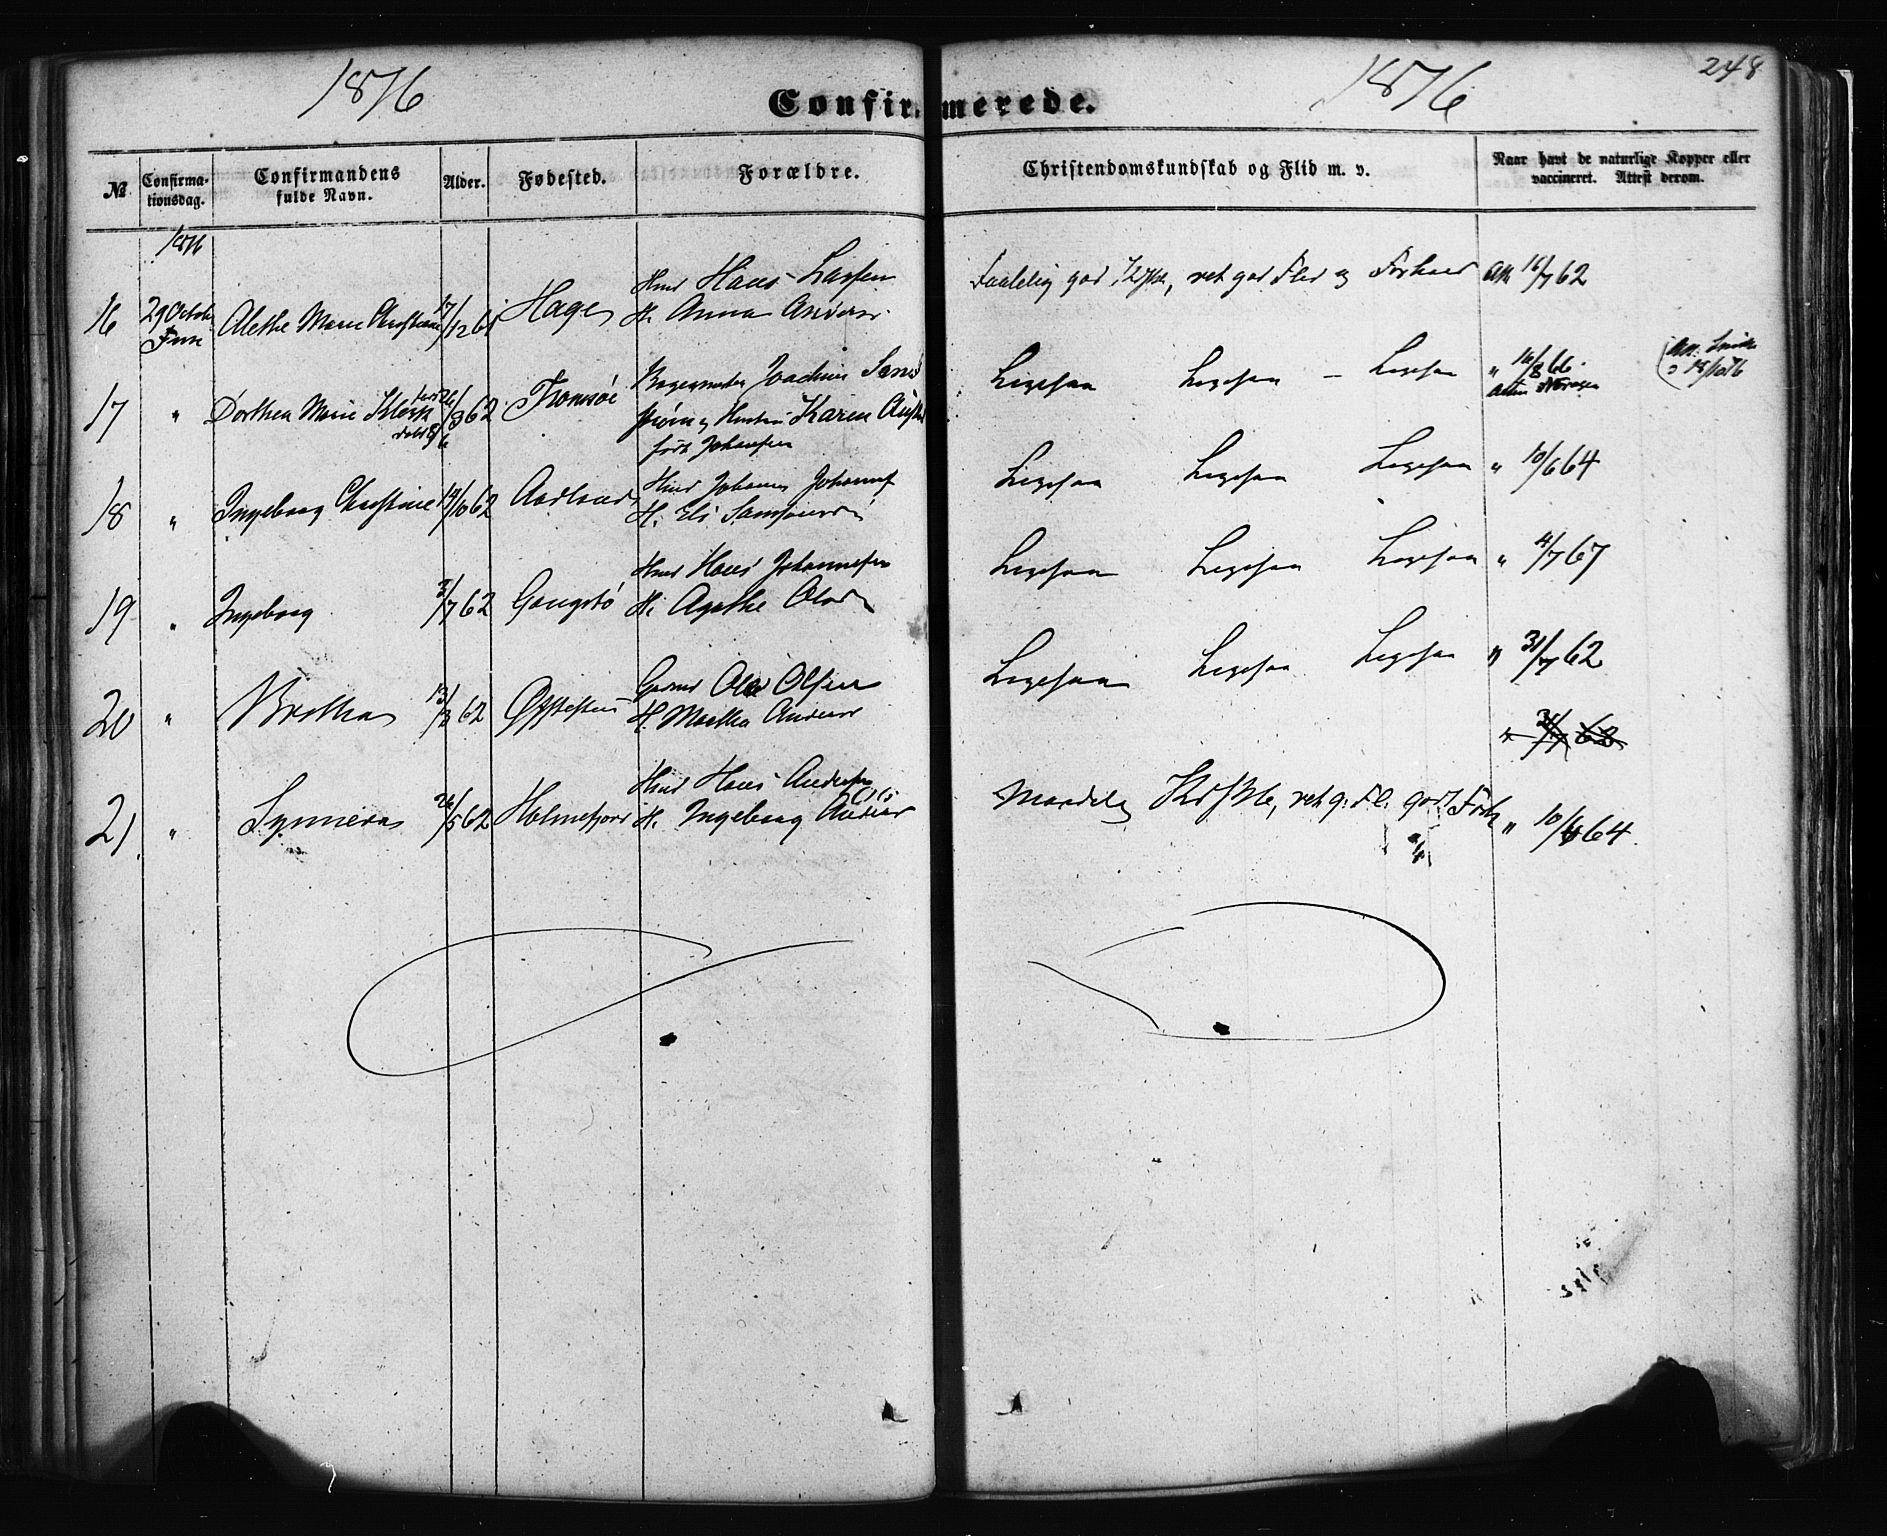 1876 Confirmerede. 1876 248
№ Confirmationsdag. Confirmandens fulde Navn. Alder. Fødested. Forældre. Christendomskundskab og Flid m. v. Naar havt de naturlige Kopper eller vaccineret. Attest derom.
1876
Hmd Hans Larsen
16 29 October Fuse Alethe Marie Christiane 17/12 61 Hage H. Anna Anders. Taalelig god, ret god Flid og Forhold Att 16/7 62
Bagermester Joachim Sand
17 " Dorthea Marie født 26/8 62 Tromsøe strøm og Hustru Karen
født Johansen
Ligesaa Ligesaa – Ligesaa " 16/8 66.
18 " Ingeborg Christine 19/10 62 Aadland Hmd Johannes Johannes
H. Eli Samsonsd Ligesaa Ligesaa Ligesaa " 10/6 64
19 " Ingeborg 2/7 62 Gangstø Hmd Hans Johannesen
H. Agathe Olsd Ligesaa Ligesaa Ligesaa " 4/7 67
20 " Bretha 13/3 62 Gmd Ole Olsen
H. Martha Anders Ligesaa Ligesaa Ligesaa " 31/7 62
" 31/7 62
21. " Synneva 26/5 62 Holmefjord Hmd Hans Andersen
H. Ingeborg Maadelig, ret g. Fl. godt Forh " 10/6 64